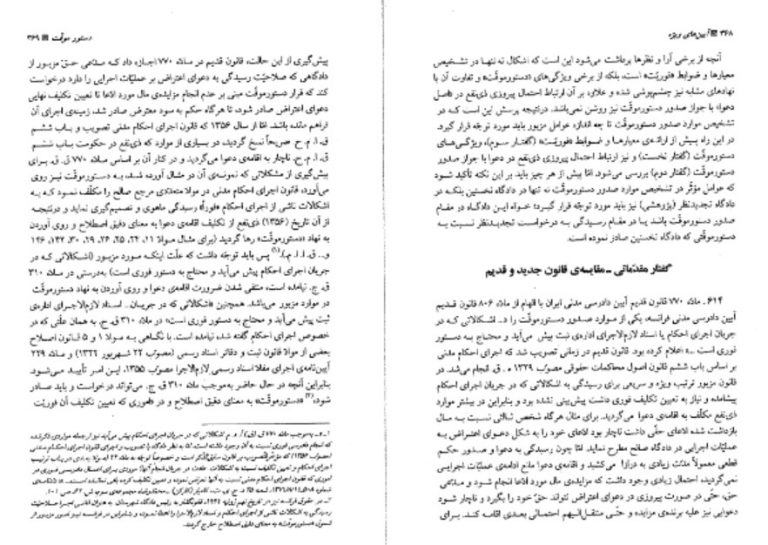 ۳۶۸ آیین‌های ویژه
آنچه از برخی آرا و نظرها برداشت می‌شود این است که اشکال نه تنها در تشخیص
معیارها و ضوابط «فوریّت» است، بلکه از برخی ویژگی‌های «دستورموقّت» و تفاوت آن با
نهادهای مشابه نیز چشم‌پوشی شده و علاوه بر آن ارتباط احتمال پیروزی ذی‌نفع در «اصل
دعوا» با جواز صدور «دستورموقّت» نیز روشن نمی‌باشد. درنتیجه پرسش این است که در
تشخیص موارد صدور دستورموقّت تا چه اندازه عوامل مزبور باید مورد توجّه قرار گیرد.
در این راه پیش از ارائه‌ی معیارها و ضوابط «فوریّت» (گفتار سوم)، ویژگی‌های
دستورموقّت (گفتار نخست) و نیز ارتباط احتمال پیروزی ذی‌نفع در دعوا با جواز صدور
دستورموقّت (گفتار دوم) بررسی می‌شود. امّا پیش از هر چیز باید بر این نکته تأکید شود
که عوامل مؤثّر در تشخیص موارد صدور دستورموقّت نه تنها در دادگاه نخستین بلکه در
دادگاه تجدیدنظر (پژوهشی) نیز باید مورد توجّه قرار گیرد؛ خواه این دادگاه در مقام
صدور دستورموقّت باشد یا در مقام رسیدگی به درخواست تجدیدنظر نسبت به
دستورموقّتی که دادگاه نخستین صادر نموده است.
گفتار مقدّماتی - مقایسه‌ی قانون جدید و قدیم
۶۱۴. ماده ۷۷۰ قانون قدیم آیین دادرسی مدنی ایران با الهام از ماده ۸۰۶ قانون قدیم
آیین دادرسی مدنی فرانسه، یکی از موارد صدور دستورموقّت را «... اشکالاتی که در
جریان اجرای احکام یا اسناد لازم‌الاجرای اداره‌ی ثبت پیش می‌آید و محتاج به دستور
فوری است ...» اعلام کرده بود. قانون قدیم در زمانی تصویب شد که اجرای احکام مدنی
بر اساس باب ششم قانون اصول محاکمات حقوقی مصوّب ۱۳۲۹ ه‍.ق. انجام می‌شد. در
قانون مزبور ترتیب ویژه و سریعی برای رسیدگی به اشکالاتی که در جریان اجرای احکام
پیشامده و نیاز به تعیین تکلیف فوری داشت پیش‌بینی نشده بود و بنابراین در بیشتر موارد
ذی‌نفع مکلّف به اقامه‌ی دعوا می‌گردید. برای مثال هرگاه شخص ثالثی نسبت به مال
بازداشت شده ادّعای حقّی داشت ناچار بود ادّعای خود را به شکل دعوای اعتراض به
عملیّات اجرایی در دادگاه صالح مطرح نماید. امّا چون رسیدگی به دعوا و صدور حکم
قطعی معمولاً مدّت زیادی به درازا می‌کشید و اقامه‌ی دعوا مانع ادامه‌ی عملیات اجرایی
نمی‌گردید، احتمال زیادی وجود داشت که مزایده‌ی مال مورد ادّعا انجام شود و مدّعی
حق، حتّی در صورت پیروزی در دعوای اعتراض نتواند حقّ خود را بگیرد و ناچار شود
دعوایی نیز علیه برنده‌ی مزایده و حتّی منتقل‌الیهم احتمالی بعدی اقامه کند. برای
دستور موقّت ۳۶۹
پیش‌گیری از این حالت، قانون قدیم در ماده ۷۷۰ اجازه داد که مدّعی حق مزبور از
دادگاهی که صلاحیّت رسیدگی به دعوای اعتراض بر عملیّات اجرایی را دارد درخواست
کند که قرار دستورموقّت مبنی بر عدم انجام مزایده‌ی مال مورد ادّعا تا تعیین تکلیف نهایی
دعوای اعتراض صادر شود، تا هرگاه حکم به سود معترض صادر شد، زمینه‌ی اجرای آن
فراهم مانده باشد. امّا از سال ۱۳۵۶ که قانون اجرای احکام مدنی تصویب و باب ششم
ق.ا.م.ح. صریحاً نسخ گردید، در بسیاری از موارد که ذی‌نفع در حکومت باب ششم
ق.ا.م.ح. ناچار به اقامه‌ی دعوا می‌گردید و در کنار آن بر اساس ماده ۷۷۰ ق.ق. برای
پیش‌گیری از مشکلاتی که نمونه‌ی آن در مثال آورده شد، به «دستورموقّت» نیز روی
می‌آورد، قانون اجرای احکام مدنی در مواد متعدّدی مرجع صالح را مکلّف نمود که به
اشکالات ناشی از اجرای احکام «فوراً» رسیدگی ماهوی و تصمیم‌گیری نماید و درنتیجه
از آن تاریخ (۱۳۵۶) ذی‌نفع از تکلیف اقامه‌ی دعوا به معنای دقیق اصطلاح و روی آوردن
به نهاد «دستورموقّت» رها گردید (برای مثال مواد ۱۱، ۲۴، ۲۵، ۲۶، ۲۹، ۳۰، ۱۴۲، ۱۴۶
و... ق.ا.ا.م.).(۱) پس باید توجّه داشت که علّت اینکه مورد مزبور (اشکالاتی که در
جریان اجرای احکام پیش می‌آید و محتاج به دستور فوری است) به‌درستی در ماده ۳۱۰
ق.ج. نیامده است، منتفی شدن ضرورت اقامه‌ی دعوا و روی آوردن به نهاد دستورموقّت
در موارد مزبور می‌باشد. همچنین «اشکالاتی که در جریان... اسناد لازم‌الاجرای اداره‌ی
ثبت پیش می‌آید و محتاج به دستور فوری است» در ماده ۳۱۰ ق.ج. به همان علّتی که در
خصوص اجرای احکام گفته شد، نیامده است. با نگاهی به مواد ۱ و ۵ قانون اصلاح
بعضی از موادّ قانون ثبت و دفاتر اسناد رسمی (مصوّب ۲۷ شهریور ۱۳۲۲) و ماده ۲۲۹
آیین‌نامه‌ی اجرای مفاد اسناد رسمی لازم‌الاجرا مصوّب ۱۳۵۵، این امر تأیید می‌شود.
بنابراین آنچه در حال حاضر به‌موجب ماده ۳۱۰ ق.ج. می‌تواند درخواست و باید صادر
شود،(۲) «دستورموقّت» به معنای دقیق اصطلاح و در «اموری که تعیین تکلیف آن فوریّت